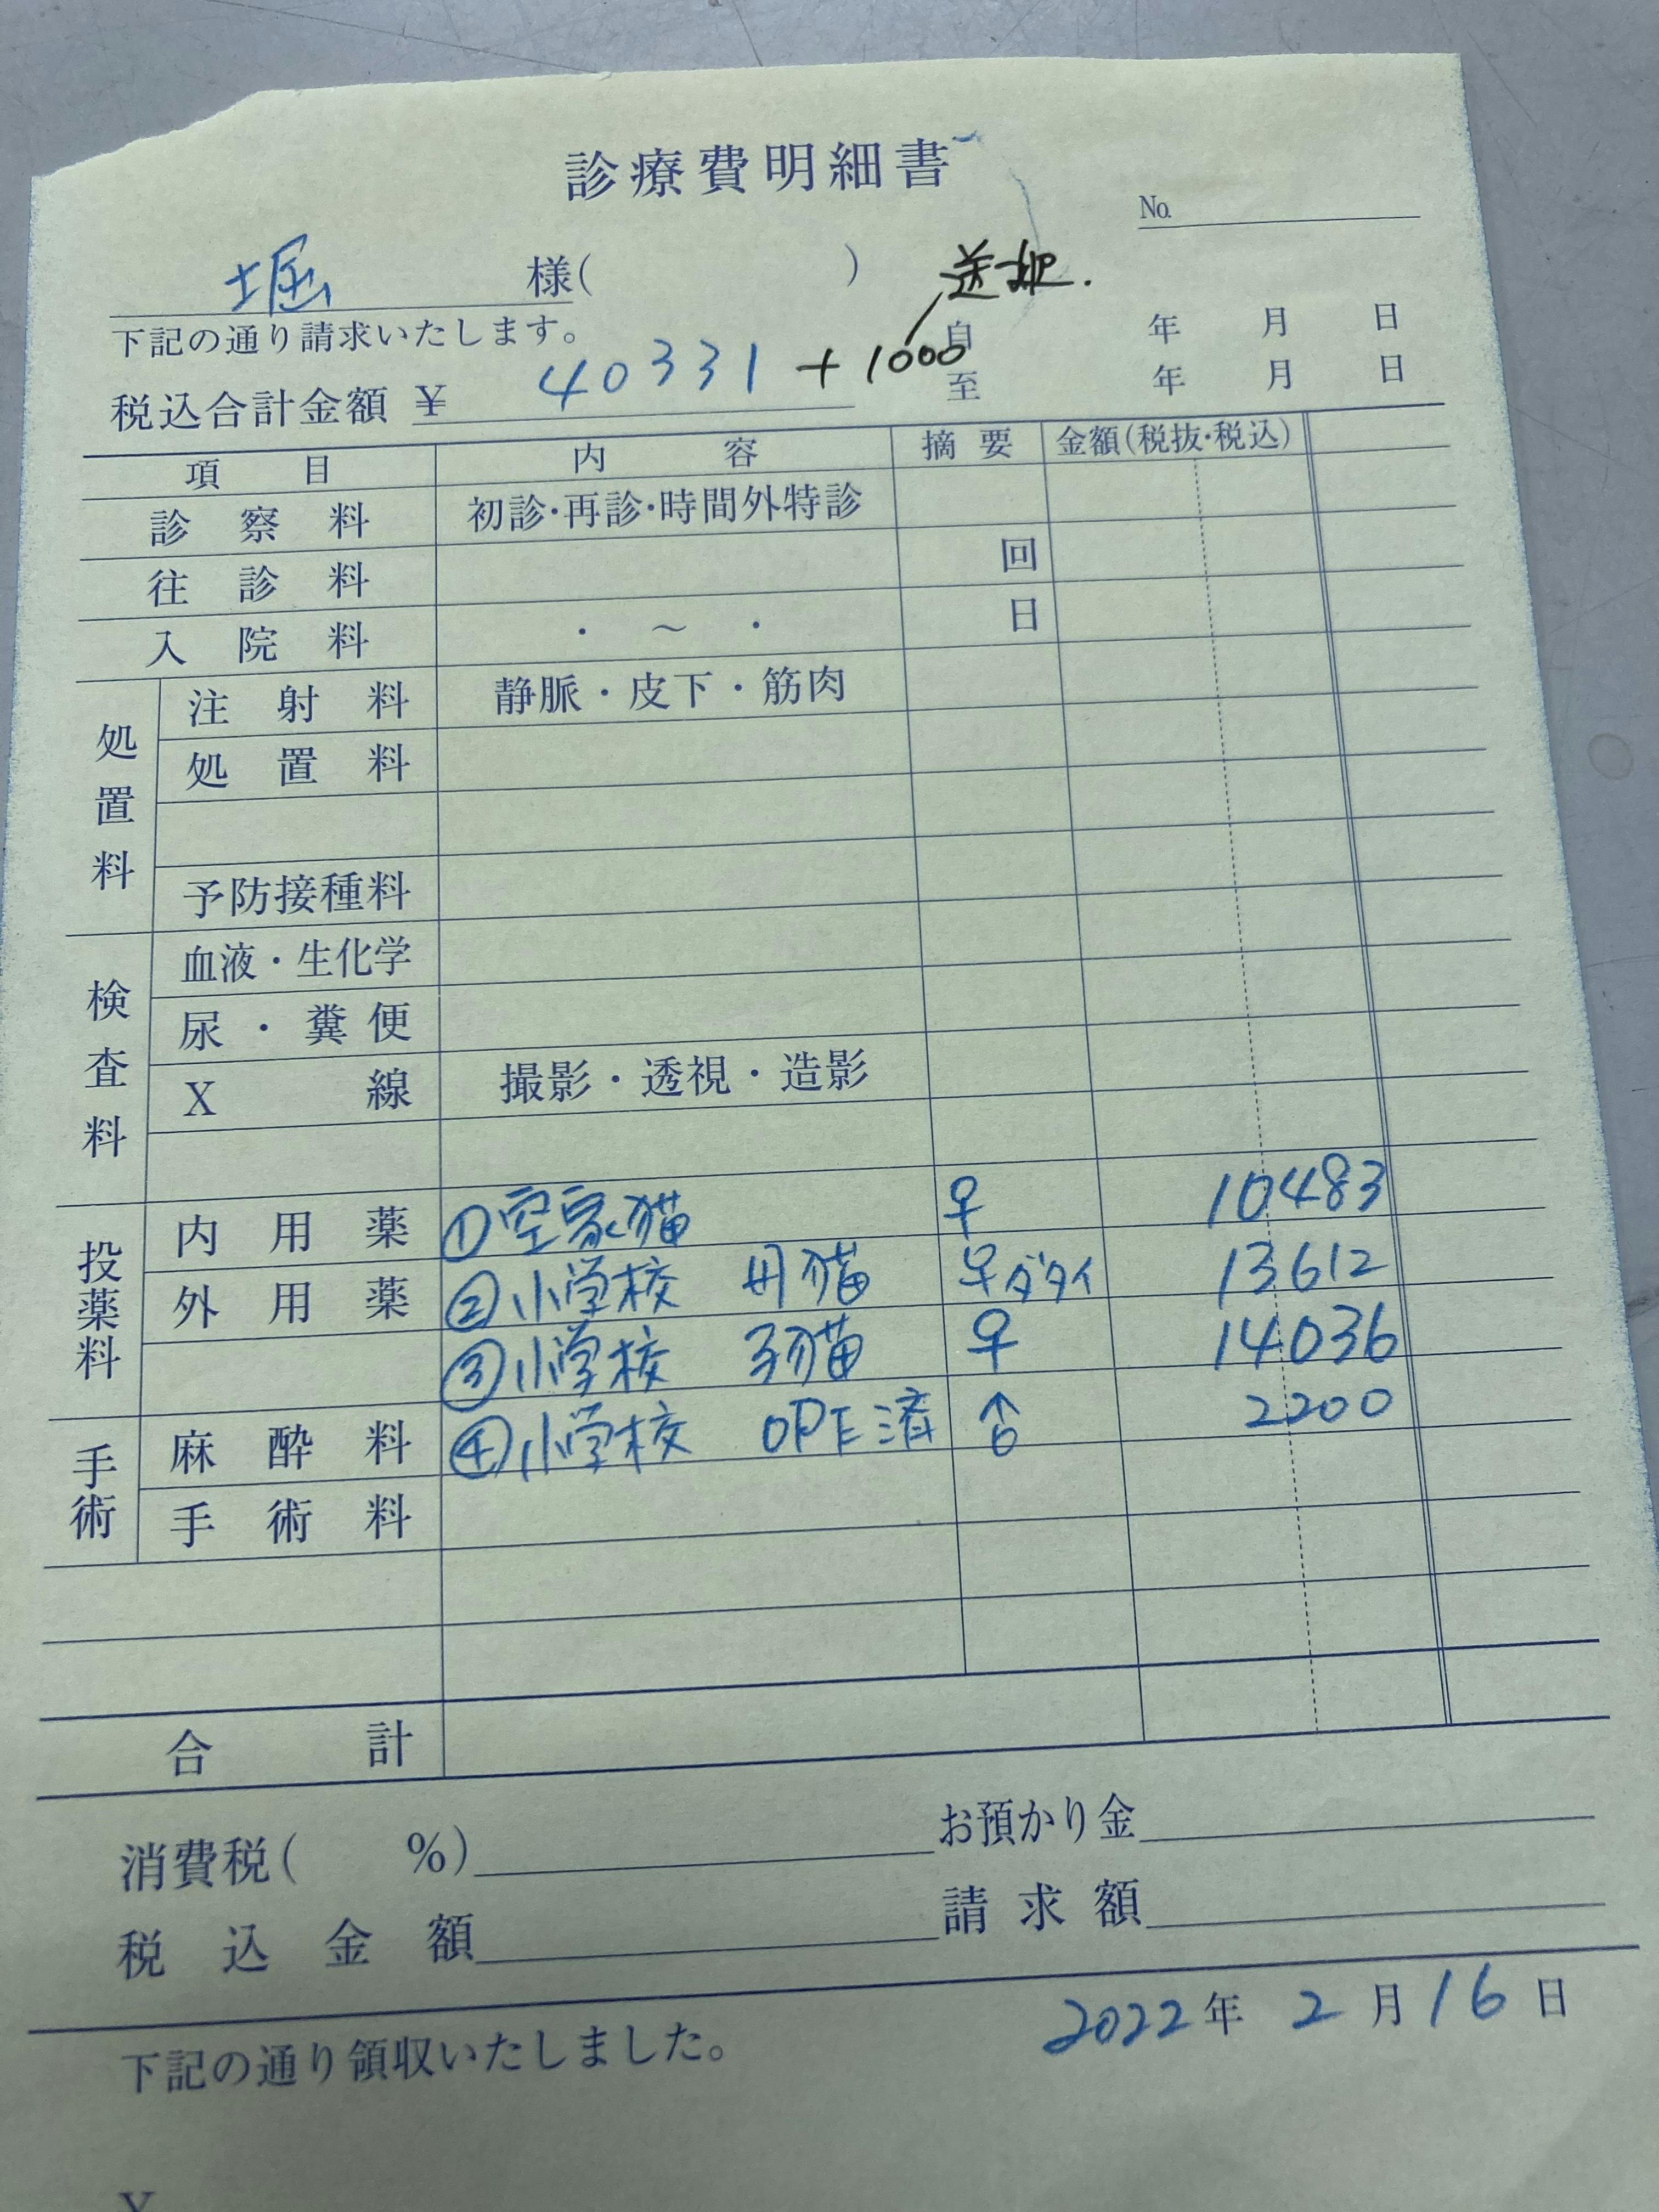 診療費明細書
No.
堀 様( )
送迎.
下記の通り請求いたします。
自 年 月 日
税込合計金額 ¥ 40331 + 1000
至 年 月 日
項目 内容 摘要 金額(税抜・税込)
診察料 初診・再診・時間外特診
往診料 回
入院料 ・ ～ ・ 日
処置料
注射料 静脈・皮下・筋肉
処置料
予防接種料
検査料
血液・生化学
尿・糞便
X線 撮影・透視・造影
投薬料
内用薬 ①空家猫 ♀ 10483
外用薬 ②小学校 母猫 ♀ダタイ 13612
③小学校 子猫 ♀ 14036
手術
麻酔料 ④小学校 OPE済 ♂ 2200
手術料
合計
消費税( %) お預かり金
税込金額 請求額
2022年 2月16日
下記の通り領収いたしました。
¥